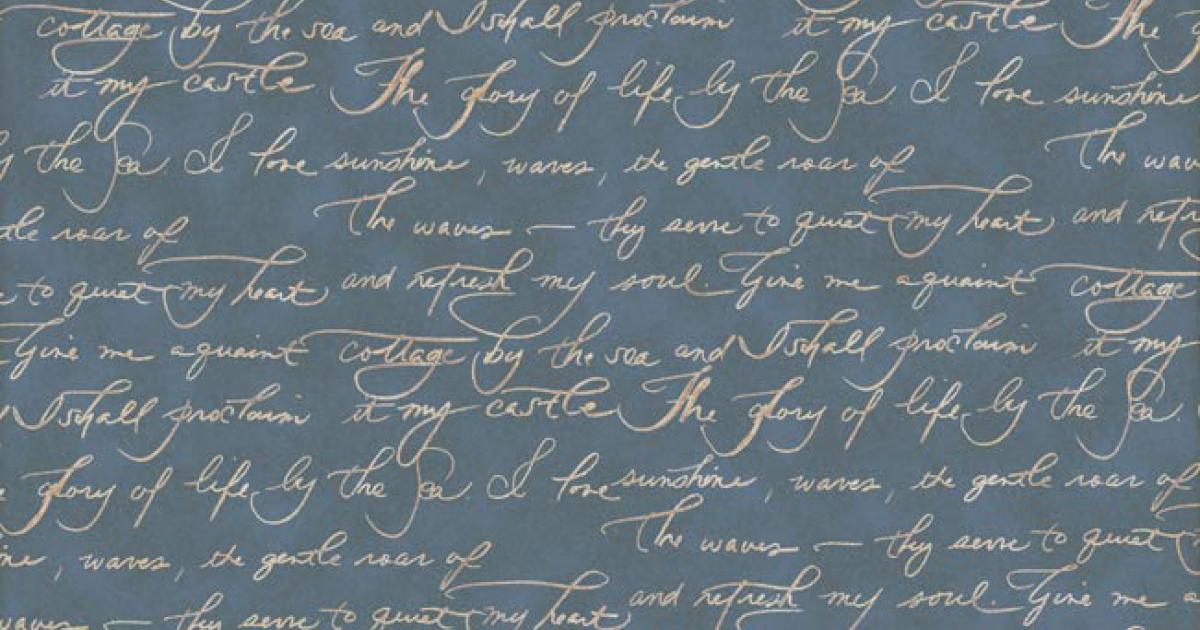 cottage by the sea and I shall proclaim it my castle The
it my castle The glory of life by the Sea I love sunshine
the Sea. I love sunshine, waves, the gentle roar of The wav
tle roar of The waves — they serve to quiet my heart and refr
e to quiet my heart and refresh my soul. Give me a quaint cottage
Give me a quaint cottage by the sea and I shall proclaim it my
I shall proclaim it my castle The glory of life by the Sea.
e glory of life by the Sea. I love sunshine, waves, the gentle roar of
ine, waves, the gentle roar of The waves — they serve to quiet
waves — they serve to quiet my heart and refresh my soul. Give me a